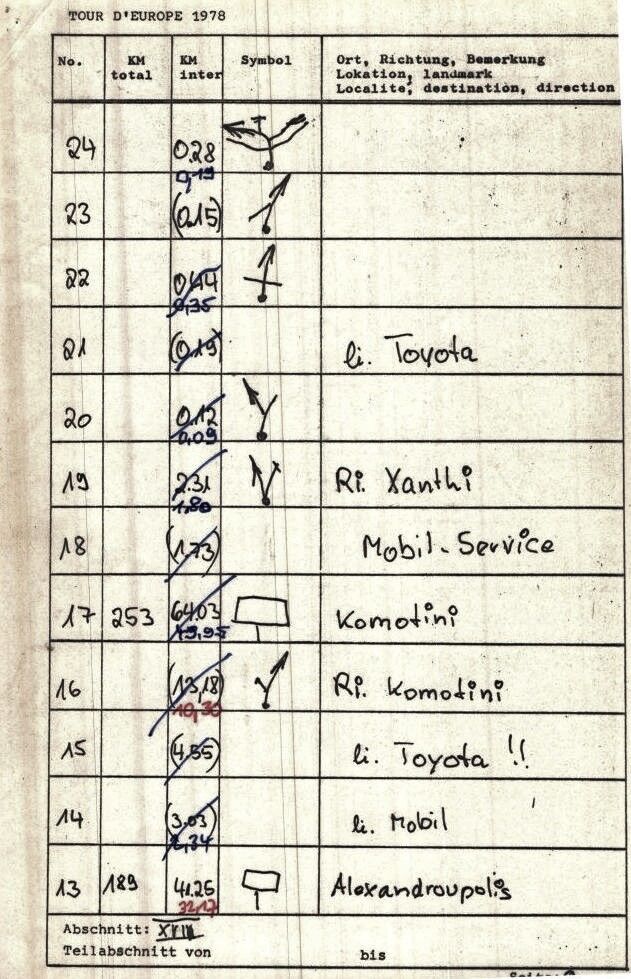 TOUR D'EUROPE 1978
No. KM total KM inter Symbol Ort, Richtung, Bemerkung
Lokation, landmark
Localite, destination, direction
24 0.28
0,19
23 (0.15)
22 0.44
0,35
21 (0.19) li. Toyota
20 0.12
0,09
19 2.31 Ri. Xanthi
1,80
18 (1.73) Mobil-Service
17 253 64.03 Komotini
49,95
16 (13,18) Ri. Komotini
10,30
15 (4.55) li. Toyota !!
14 (3.03) li. Mobil
2,34
13 189 41.25 Alexandroupolis
32,17
Abschnitt: XIII
Teilabschnitt von bis